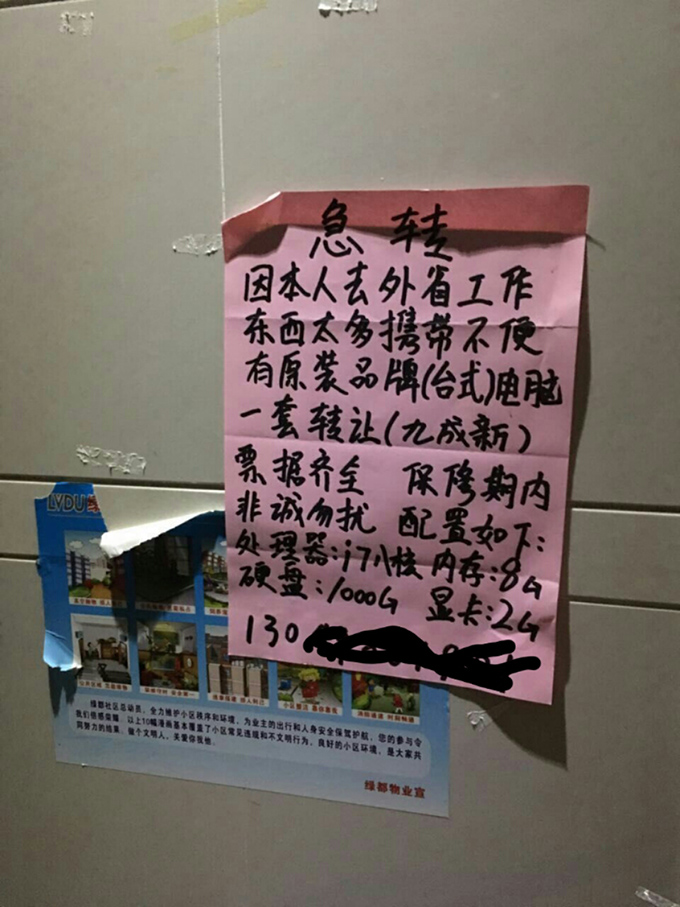 急转
因本人去外省工作
东西太多携带不便
有原装品牌(台式)电脑
一套转让(九成新)
票据齐全 保修期内
非诚勿扰 配置如下:
处理器:i7八核 内存:8G
硬盘:1000G 显卡:2G
130
LVDU绿
绿都社区总动员，全力维护小区秩序和环境，为业主的出行和人身安全保驾护航，您的参与令
我们倍感荣耀。以上10幅漫画基本覆盖了小区常见违规和不文明行为，良好的小区环境，是大家共
同努力的结果。做个文明人，关爱你我他。
绿都物业宣